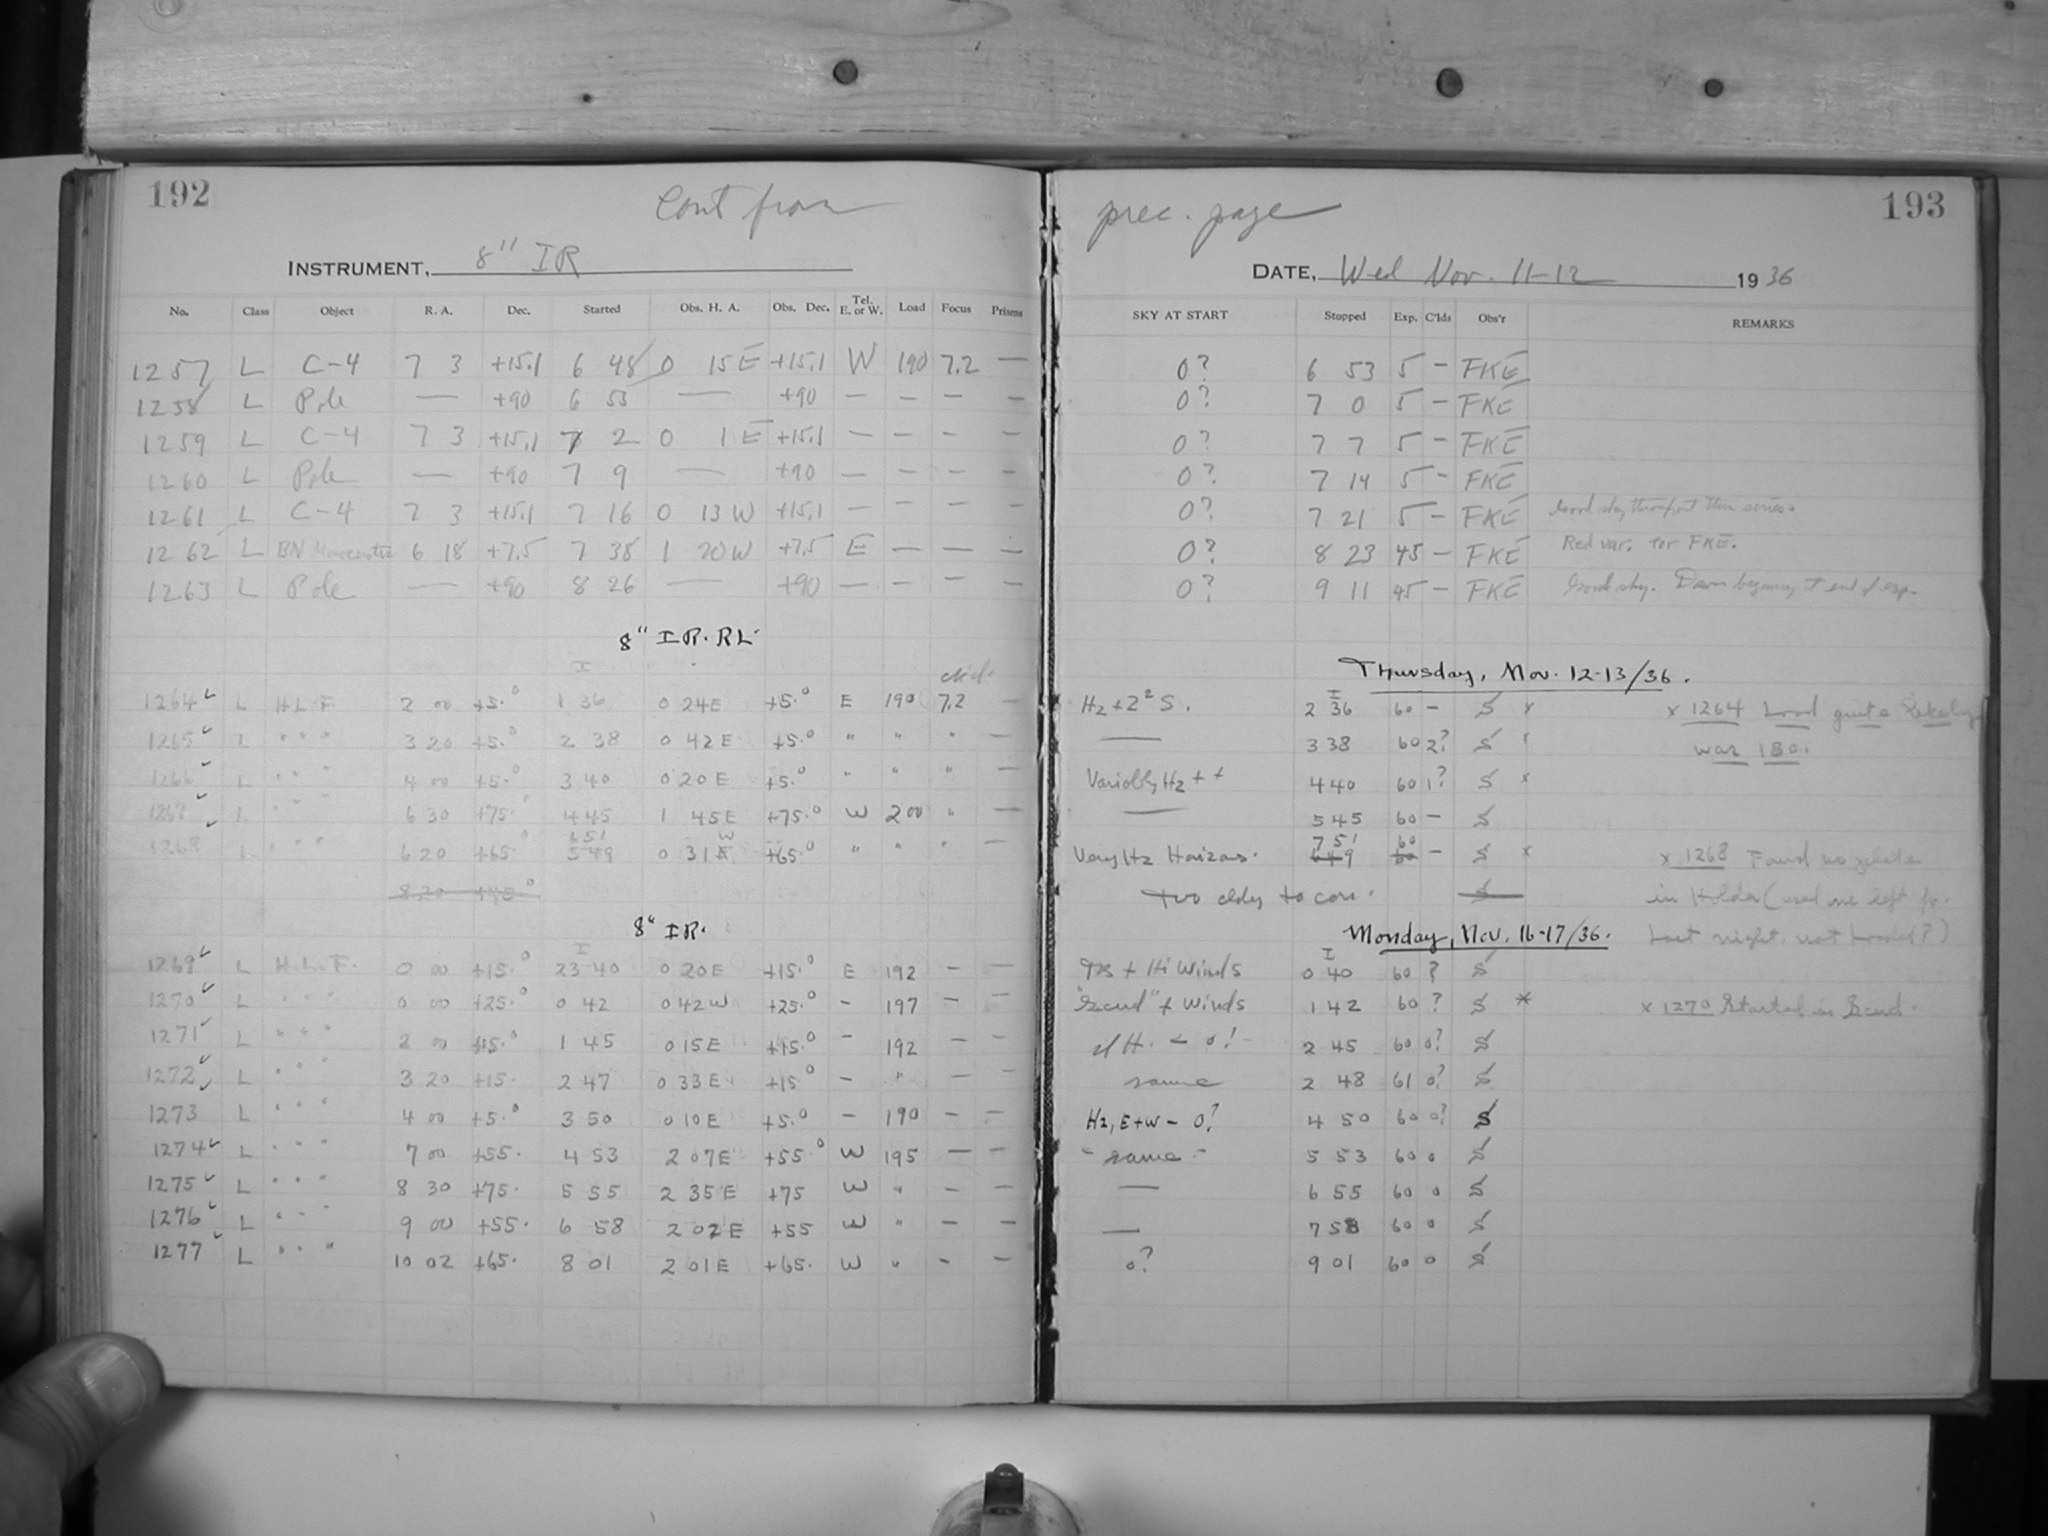 192
Cont from
INSTRUMENT, 8" IR
No. Class Object R. A. Dec. Started Obs. H. A. Obs. Dec. Tel. E. or W. Load Focus Prisms
1257 L C-4 7 3 +15.1 6 48 0 15 E +15.1 W 190 7.2 —
1258 L Pole — +90 6 55 — +90 — — — —
1259 L C-4 7 3 +15.1 7 2 0 1 E +15.1 — — — —
1260 L Pole — +90 7 9 — +90 — — — —
1261 L C-4 7 3 +15.1 7 16 0 13 W +15.1 — — — —
1262 L BN 6 18 +7.5 7 38 1 20 W +7.5 E — — —
1263 L Pole — +90 8 26 — +90 — — — —
8" I.R. RL.
1264 L H.L.F. 2 00 +5.° 1 36 0 24 E +5.° E 190 7.2 —
1265 L " " " 3 20 +5.° 2 38 0 42 E +5.° " " " —
1266 L " " " 4 00 +5.° 3 40 0 20 E +5.° " " " —
1267 L " " " 6 30 +75.° 4 45 1 45 E +75.° W 200 " —
651
1268 L " " " 6 20 +65.° 5 49 0 31 W +65.° " " " —
8 20
8" IR.
1269 L H.L.F. 0 00 +15.° 23 40 0 20 E +15.° E 192 — —
1270 L " " " 0 00 +25.° 0 42 0 42 W +25.° - 197 — —
1271 L " " " 2 00 +15.° 1 45 0 15 E +15.° - 192 — —
1272 L " " " 3 20 +15. 2 47 0 33 E +15° - " — —
1273 L " " " 4 00 +5.° 3 50 0 10 E +5.° - 190 — —
1274 L " " " 7 00 +55. 4 53 2 07 E +55.° W 195 — —
1275 L " " " 8 30 +75. 5 55 2 35 E +75 W " — —
1276 L " " " 9 00 +55. 6 58 2 02 E +55 W " — —
1277 L " " " 10 02 +65. 8 01 2 01 E +65. W " — —
prec. page
193
DATE, Wed Nov. 11-12 1936
SKY AT START Stopped Exp. C'lds Obs'r REMARKS
0? 6 53 5 — FKE
0? 7 0 5 — FKE
0? 7 7 5 — FKE
0? 7 14 5 — FKE
0? 7 21 5 — FKE Good sky throughout this series
0? 8 23 45 — FKE Red var. for FKE.
0? 9 11 45 — FKE Good sky. Dawn beginning at end of exp.
Thursday, Nov. 12-13/36.
Hz + 2² S. 2 36 60 — S x x 1264 Load quite likely
— 3 38 60 2? S was 180.
Variably Hz + + 4 40 60 1? S x
— 5 45 60 — S
751 60
Very Hz Horizons. 649 60 — S x x 1268 Found no plate
Too cldy to con. S in Holder (used one left fr.
Monday, Nov. 16-17/36. Last night, not Loaded?)
+ Hi Winds 0 40 60 ? S
"Scud" + Winds 1 42 60 ? S * x 1270 Started in Scud.
0! - 2 45 60 0? S
same 2 48 61 0? S
Hz, E+W - 0? 4 50 60 0? S
" same - " 5 53 60 0 S
— 6 55 60 0 S
— 7 58 60 0 S
0? 9 01 60 0 S